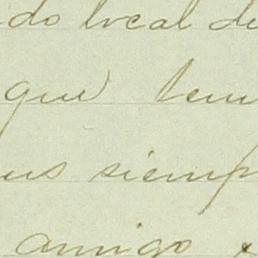 do local de
que tem
us siemp
amigo